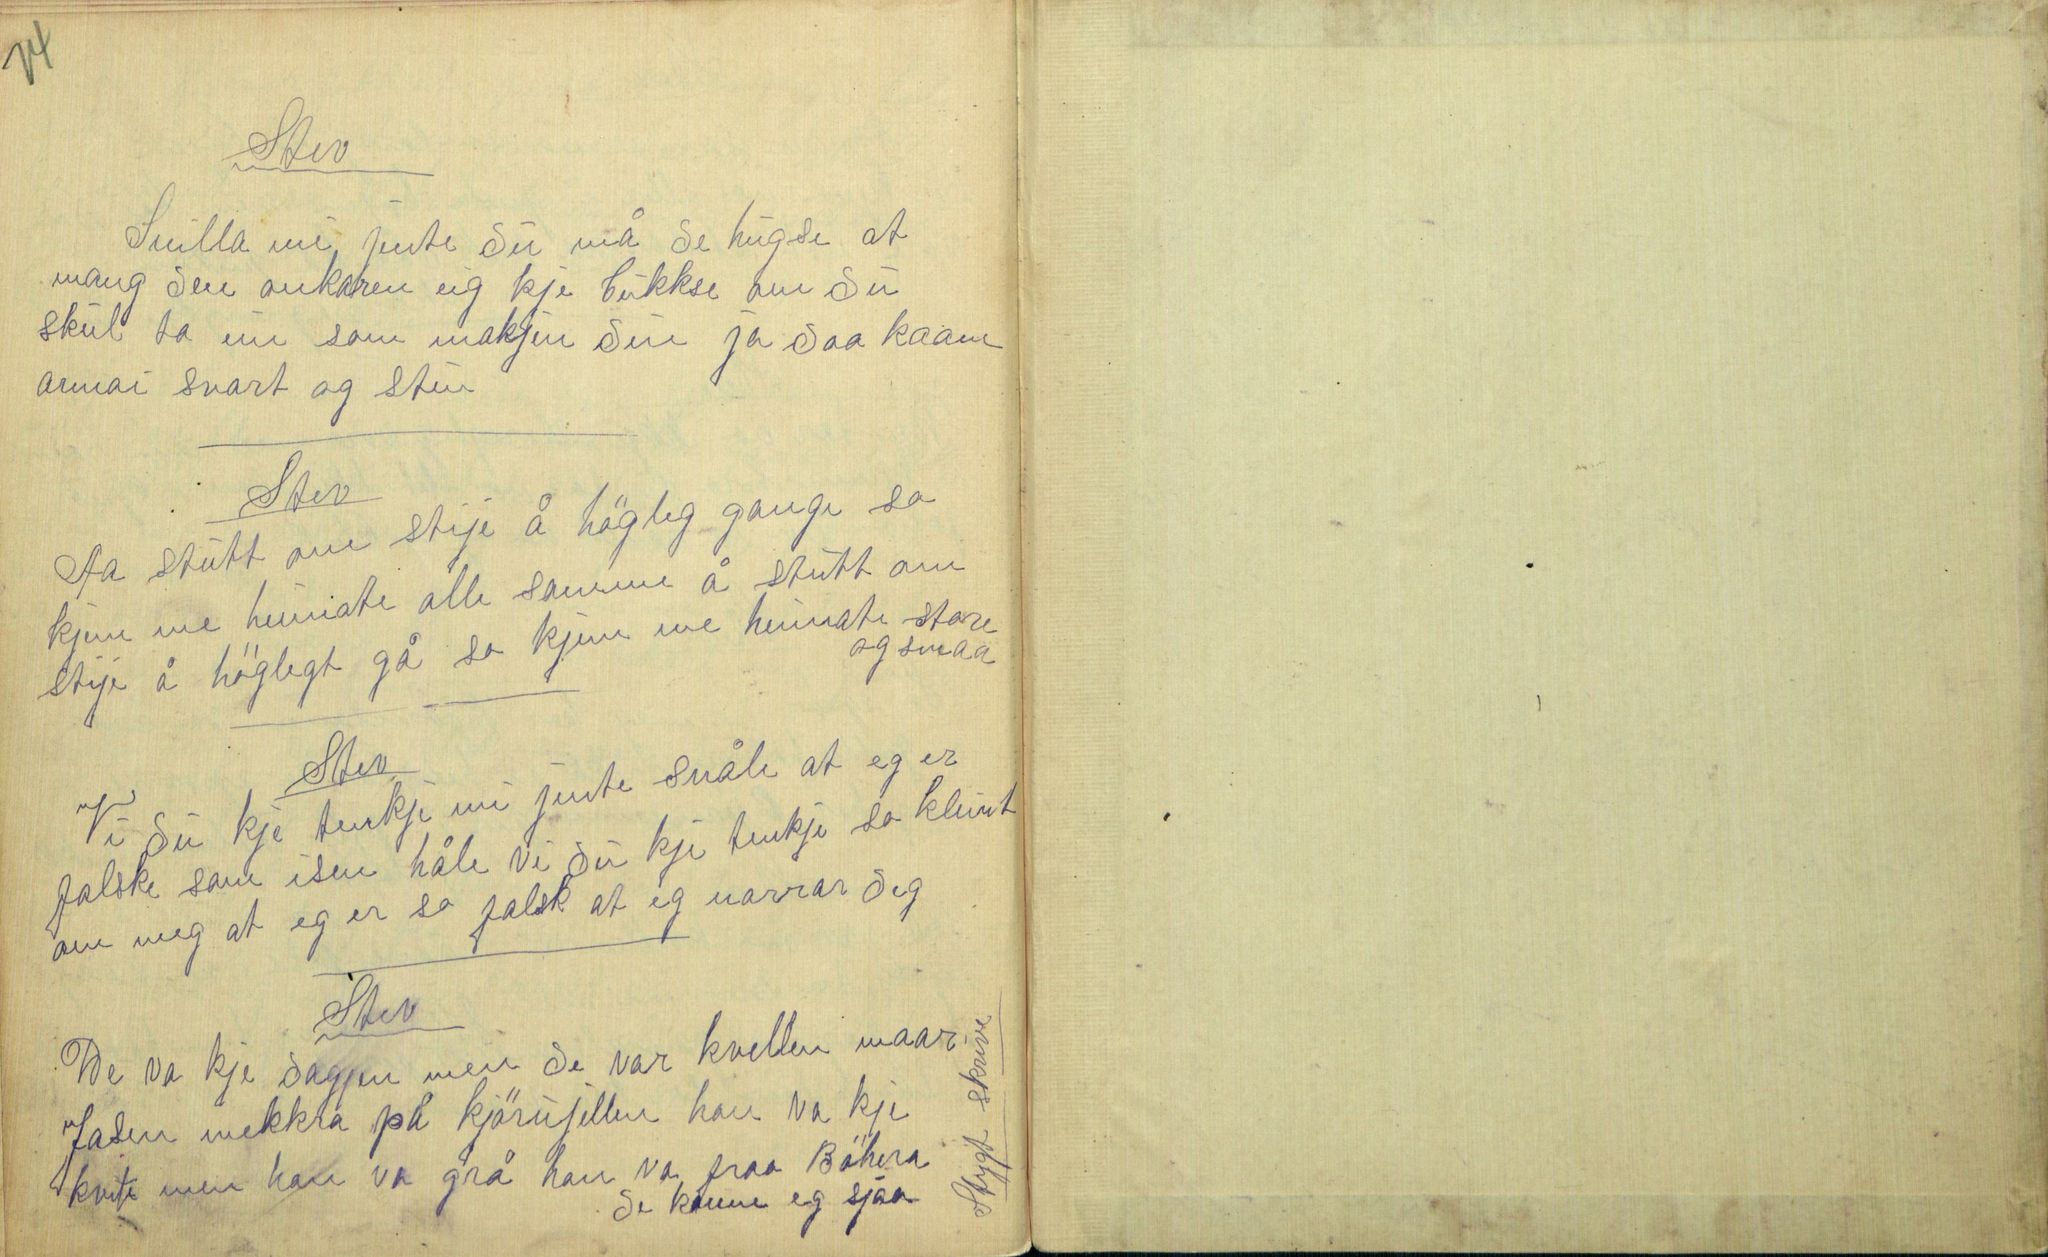 74
Stev
Snilla mi jente du må de hugse at
mang den ankaren eig kje bukkse om du
skul ta ein som makjen din ja daa kaam
armai svart og stin
Stev
Aa stutt om stije å högleg gange so
kjem me heimate alle samme å stutt om
stije å höglegt gå so kjem me heimate store
og smaa
Stev
Vi du kje tenkje mi jente snåle at eg er
falske som isen håle vi du kje tenkje so kleint
om meg at eg er so falsk at eg narrar deg
Stev
De va kje dagjen men de var kvellen maar
Jasen mekkra på kjörnjellen han va kje
kvite men han va grå han va fraa Böhera
de kunne eg sjaa
Stygt skrive